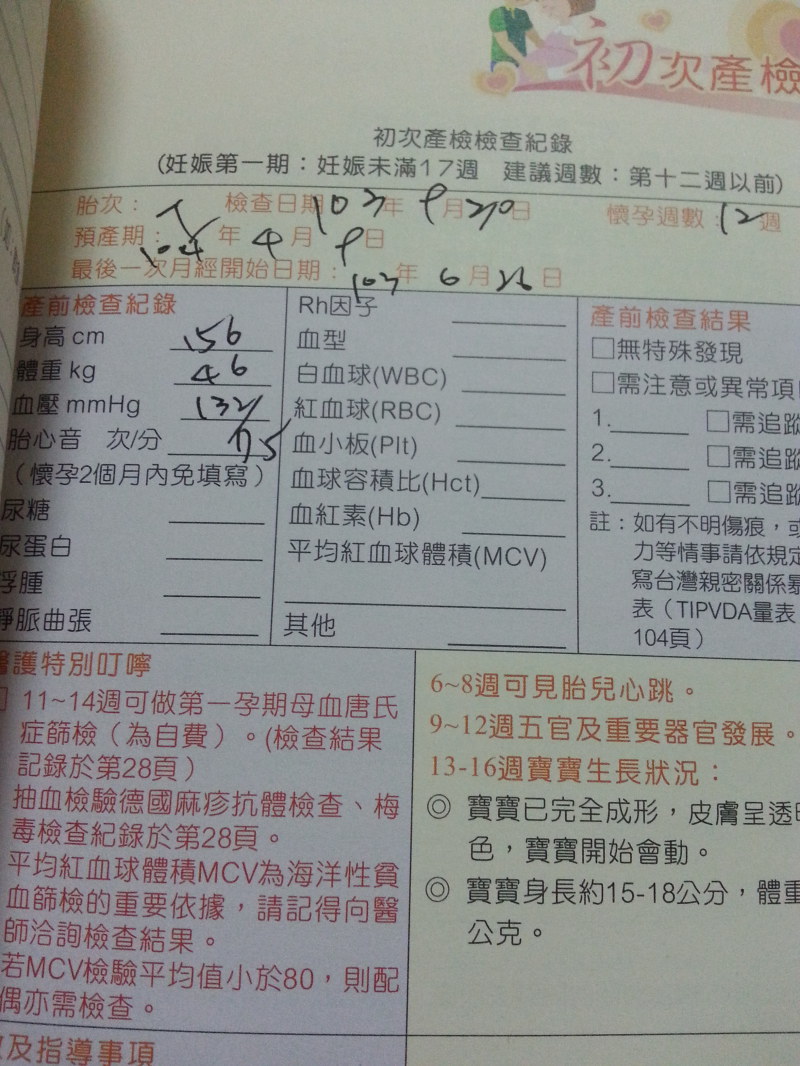 初次產檢
初次產檢檢查紀錄
(妊娠第一期：妊娠未滿17週 建議週數：第十二週以前)
胎次： 檢查日期103年9月20日 懷孕週數：12週
預產期：104年4月9日
最後一次月經開始日期：103年6月26日
產前檢查紀錄
身高 cm 156
體重 kg 46
血壓 mmHg 132/75
胎心音 次/分
（懷孕2個月內免填寫）
尿糖
尿蛋白
浮腫
靜脈曲張
Rh因子
血型
白血球(WBC)
紅血球(RBC)
血小板(Plt)
血球容積比(Hct)
血紅素(Hb)
平均紅血球體積(MCV)
其他
產前檢查結果
□無特殊發現
□需注意或異常項
1. □需追蹤
2. □需追蹤
3. □需追蹤
註：如有不明傷痕，或
力等情事請依規定
寫台灣親密關係暴
表（TIPVDA量表
104頁）
護特別叮嚀
11~14週可做第一孕期母血唐氏
症篩檢（為自費）。(檢查結果
記錄於第28頁）
抽血檢驗德國麻疹抗體檢查、梅
毒檢查紀錄於第28頁。
平均紅血球體積MCV為海洋性貧
血篩檢的重要依據，請記得向醫
師洽詢檢查結果。
若MCV檢驗平均值小於80，則配
偶亦需檢查。
6~8週可見胎兒心跳。
9~12週五官及重要器官發展。
13-16週寶寶生長狀況：
◎ 寶寶已完全成形，皮膚呈透明
色，寶寶開始會動。
◎ 寶寶身長約15-18公分，體重
公克。
及指導事項